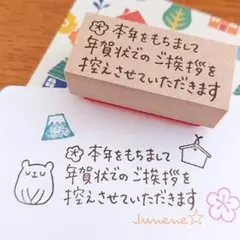 本年をもちまして
年賀状でのご挨拶を
控えさせていただきます
本年をもちまして
年賀状でのご挨拶を
控えさせていただきます
Junene☆